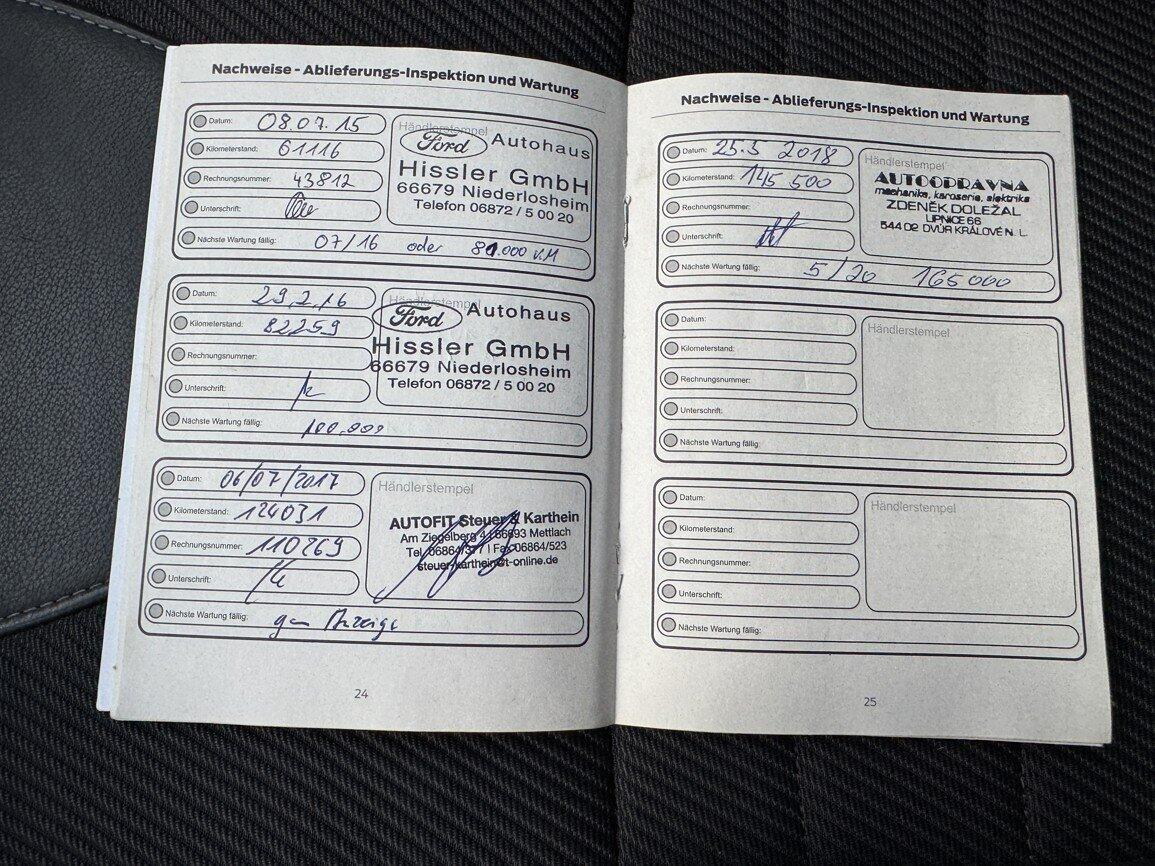 Nachweise - Ablieferungs-Inspektion und Wartung
Datum: 08.07.15
Kilometerstand: 61116
Rechnungsnummer: 43812
Unterschrift:
Nächste Wartung fällig: 07/16 oder 81.000 KM
Händlerstempel
Ford Autohaus
Hissler GmbH
66679 Niederlosheim
Telefon 06872 / 5 00 20
Datum: 29.2.16
Kilometerstand: 82259
Rechnungsnummer:
Unterschrift:
Nächste Wartung fällig: 100.000
Händlerstempel
Ford Autohaus
Hissler GmbH
66679 Niederlosheim
Telefon 06872 / 5 00 20
Datum: 06/07/2017
Kilometerstand: 124031
Rechnungsnummer: 110269
Unterschrift:
Nächste Wartung fällig: gem Anzeige
Händlerstempel
AUTOFIT Steuer & Karthein
Am Ziegelberg 4 | 66693 Mettlach
Tel. 06864/ | Fax 06864/523
steuer-karthein@t-online.de
24
Nachweise - Ablieferungs-Inspektion und Wartung
Datum: 25.5 2018
Kilometerstand: 145 500
Rechnungsnummer:
Unterschrift:
Nächste Wartung fällig: 5/20 165 000
Händlerstempel
AUTOOPRAVNA
mechanika, karoserie, elektrika
ZDENĚK DOLEŽAL
LIPNICE 66
544 02 DVŮR KRÁLOVÉ N. L.
Datum:
Kilometerstand:
Rechnungsnummer:
Unterschrift:
Nächste Wartung fällig:
Händlerstempel
Datum:
Kilometerstand:
Rechnungsnummer:
Unterschrift:
Nächste Wartung fällig:
Händlerstempel
25